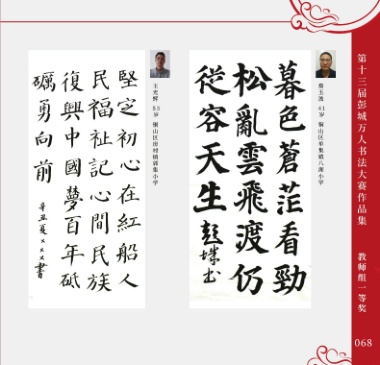 第十三届彭城万人书法大赛作品集
教师组一等奖
068
41岁 铜山区单集镇八湖小学
暮色蒼茫看勁
松亂雲飛渡仍
從容天生
王光辉 53岁 铜山区房村镇郭集小学
堅定初心在紅船人
民福祉記心間民族
復興中國夢百年砥
礪勇向前
辛丑夏×××書